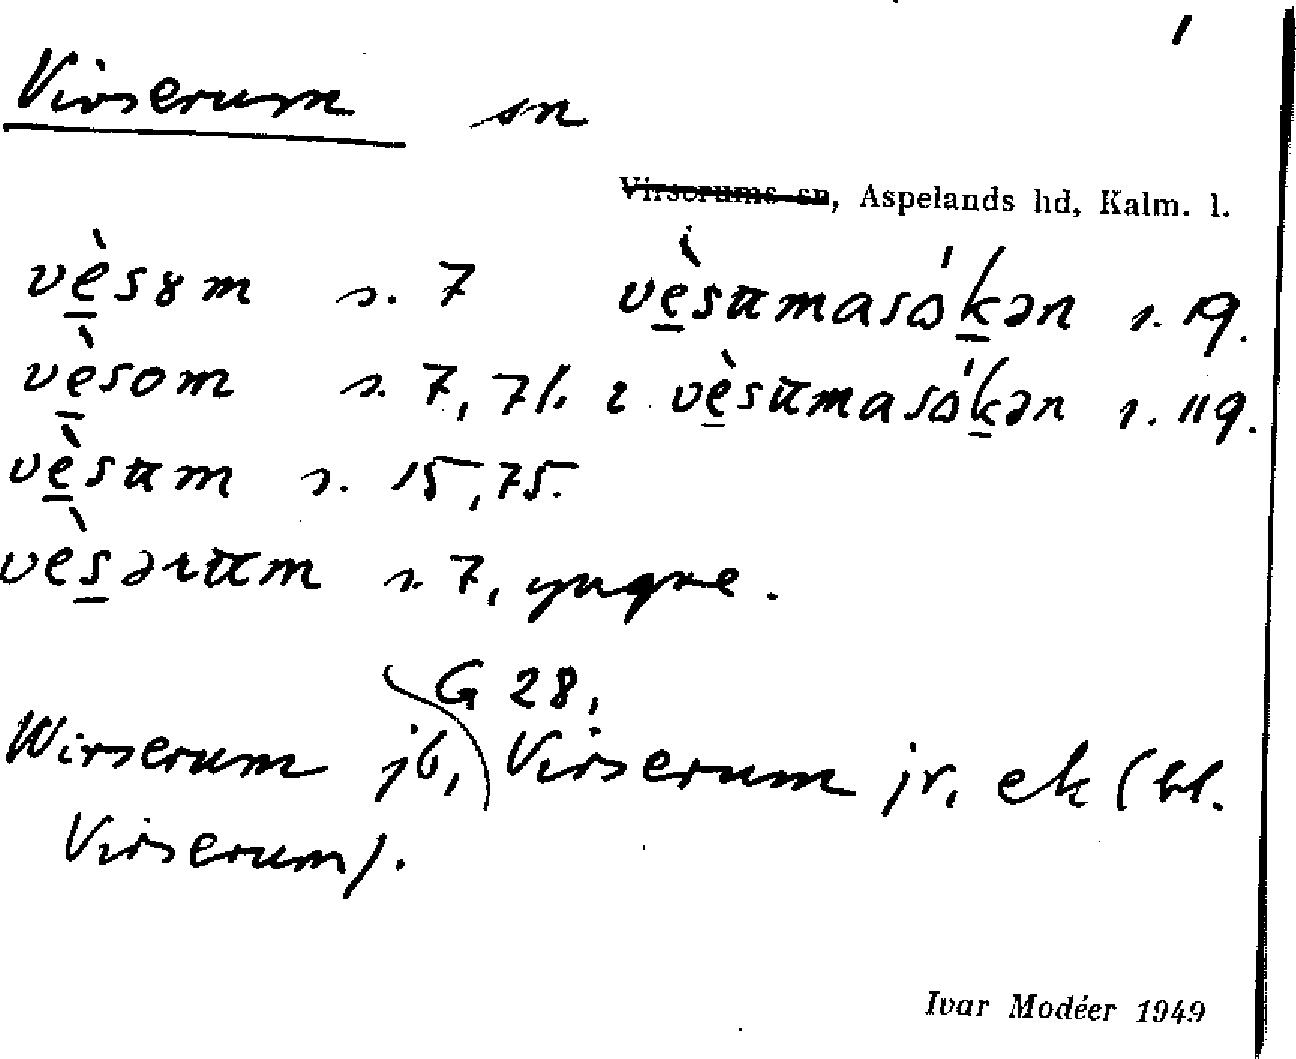 1
Virserum sn
Virserums sn, Aspelands hd, Kalm. l.
vè̠sɤm s. 7 vè̠sumasó̀k̠ən s. 19.
vè̠som s. 7, 71. 2 vè̠sumasó̀k̠ən s. 119.
vè̠sum s. 15, 75.
vès̠ərum s. 7, yngre.
G 28,
Wirserum jb, Virserum jr, ek (bl.
Virserum).
Ivar Modéer 1949